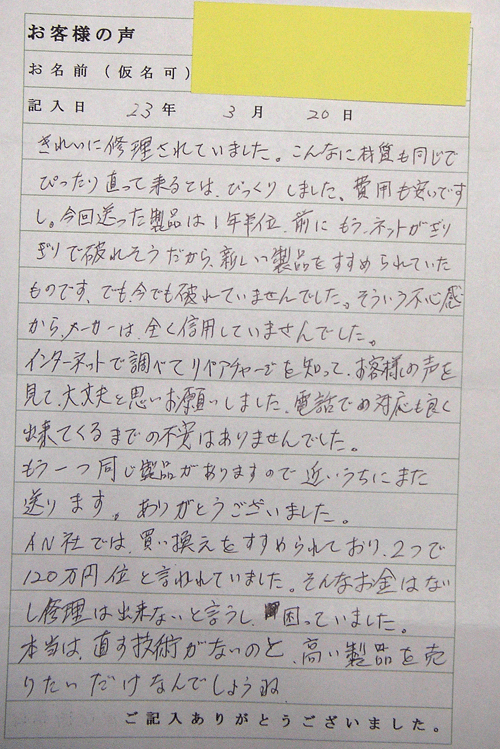 お客様の声
お名前(仮名可)
記入日 23年 3月 20日
きれいに修理されていました。こんなに材質も同じで
ぴったり直って来るとは、びっくりしました、費用も安いです
し。今回送った製品は1年半位、前に もう、ネットがぎり
ぎりで破れそうだから、新しい製品をすすめられていた
ものです、でも、今でも破れていませんでした。そういう不心感
から、メーカーは、全く信用していませんでした。
インターネットで調べてリペアチャージを知って、お客様の声を
見て、大丈夫と思いお願いしました、電話での対応も良く
出来てくるまでの不安はありませんでした。
もう一つ同じ製品がありますので近いうちにまた
送ります。ありがとうございました。
AN社では、買い換えをすすめられており、2つで
120万円位と言われていました。そんなお金はない
し修理は出来ないと言うし、困っていました。
本当は、直す技術がないのと、高い製品を売
りたいだけなんでしょうね
ご記入ありがとうございました。